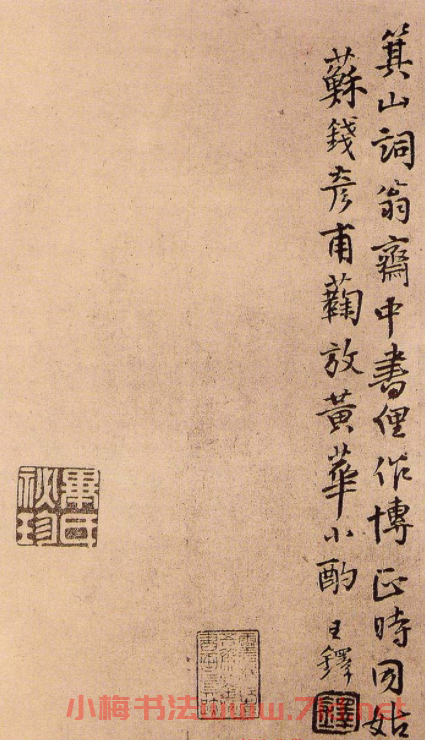 箕山詞翁齋中書俚作博正時同姑
蘇錢彥甫蘜放黃華小酌
王鐸
畢氏秘珍
小梅书法www.7